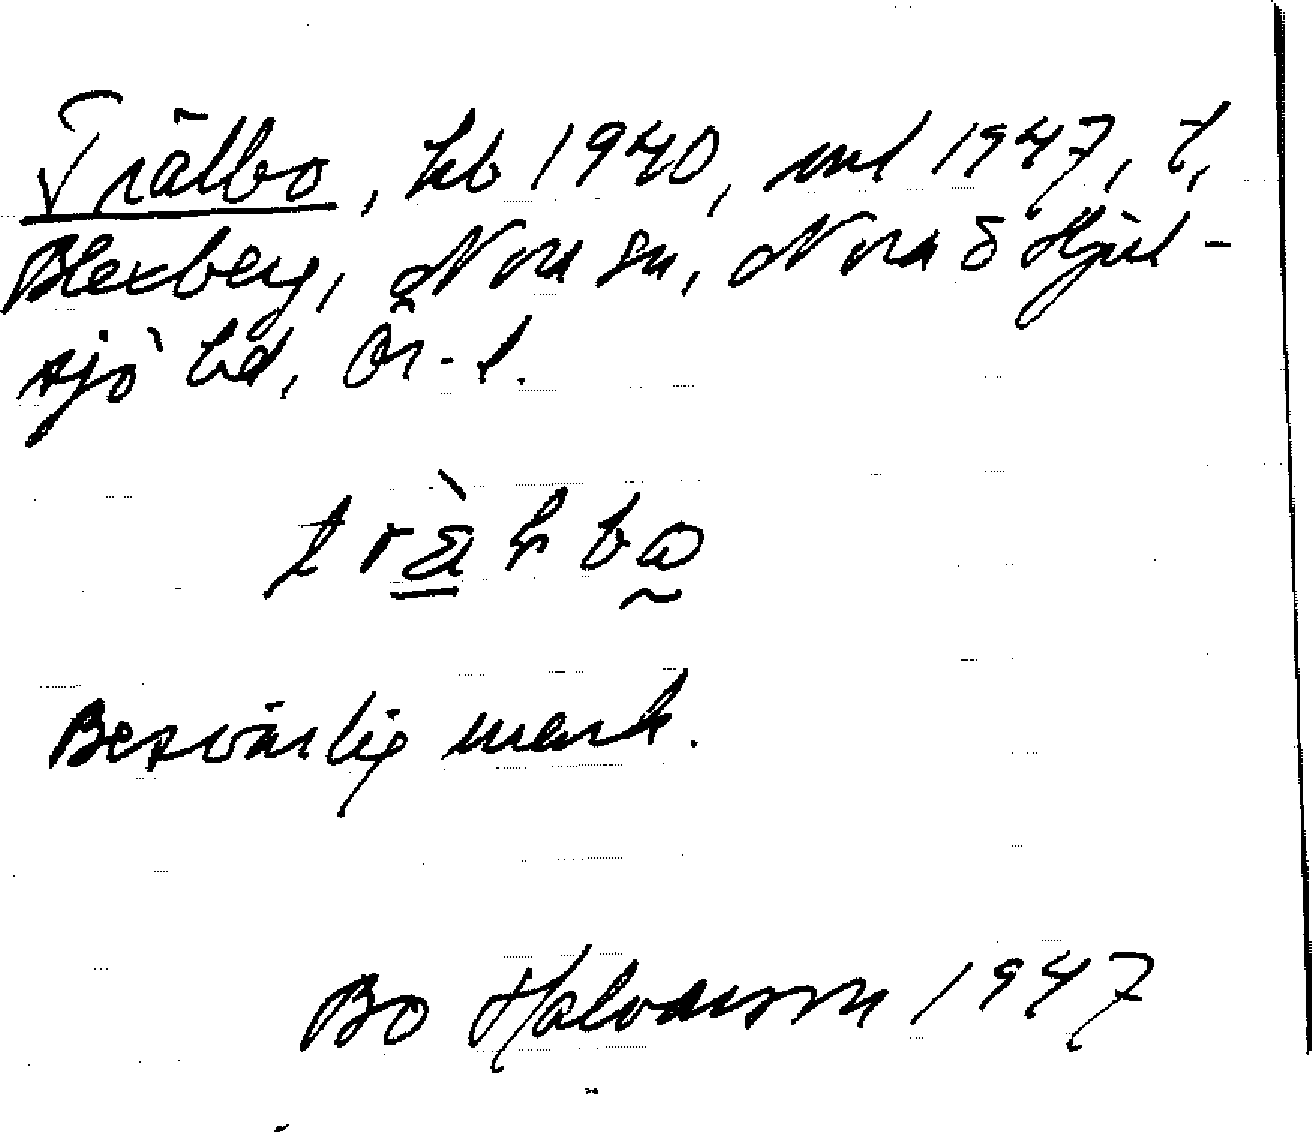 Trälbo, kb 1940, uul 1947, t,
Blexberg, Nora sn, Nora o Hjul-
sjö hd, Ör-l.
Besvärlig mark.
Bo Halvarsson 1947